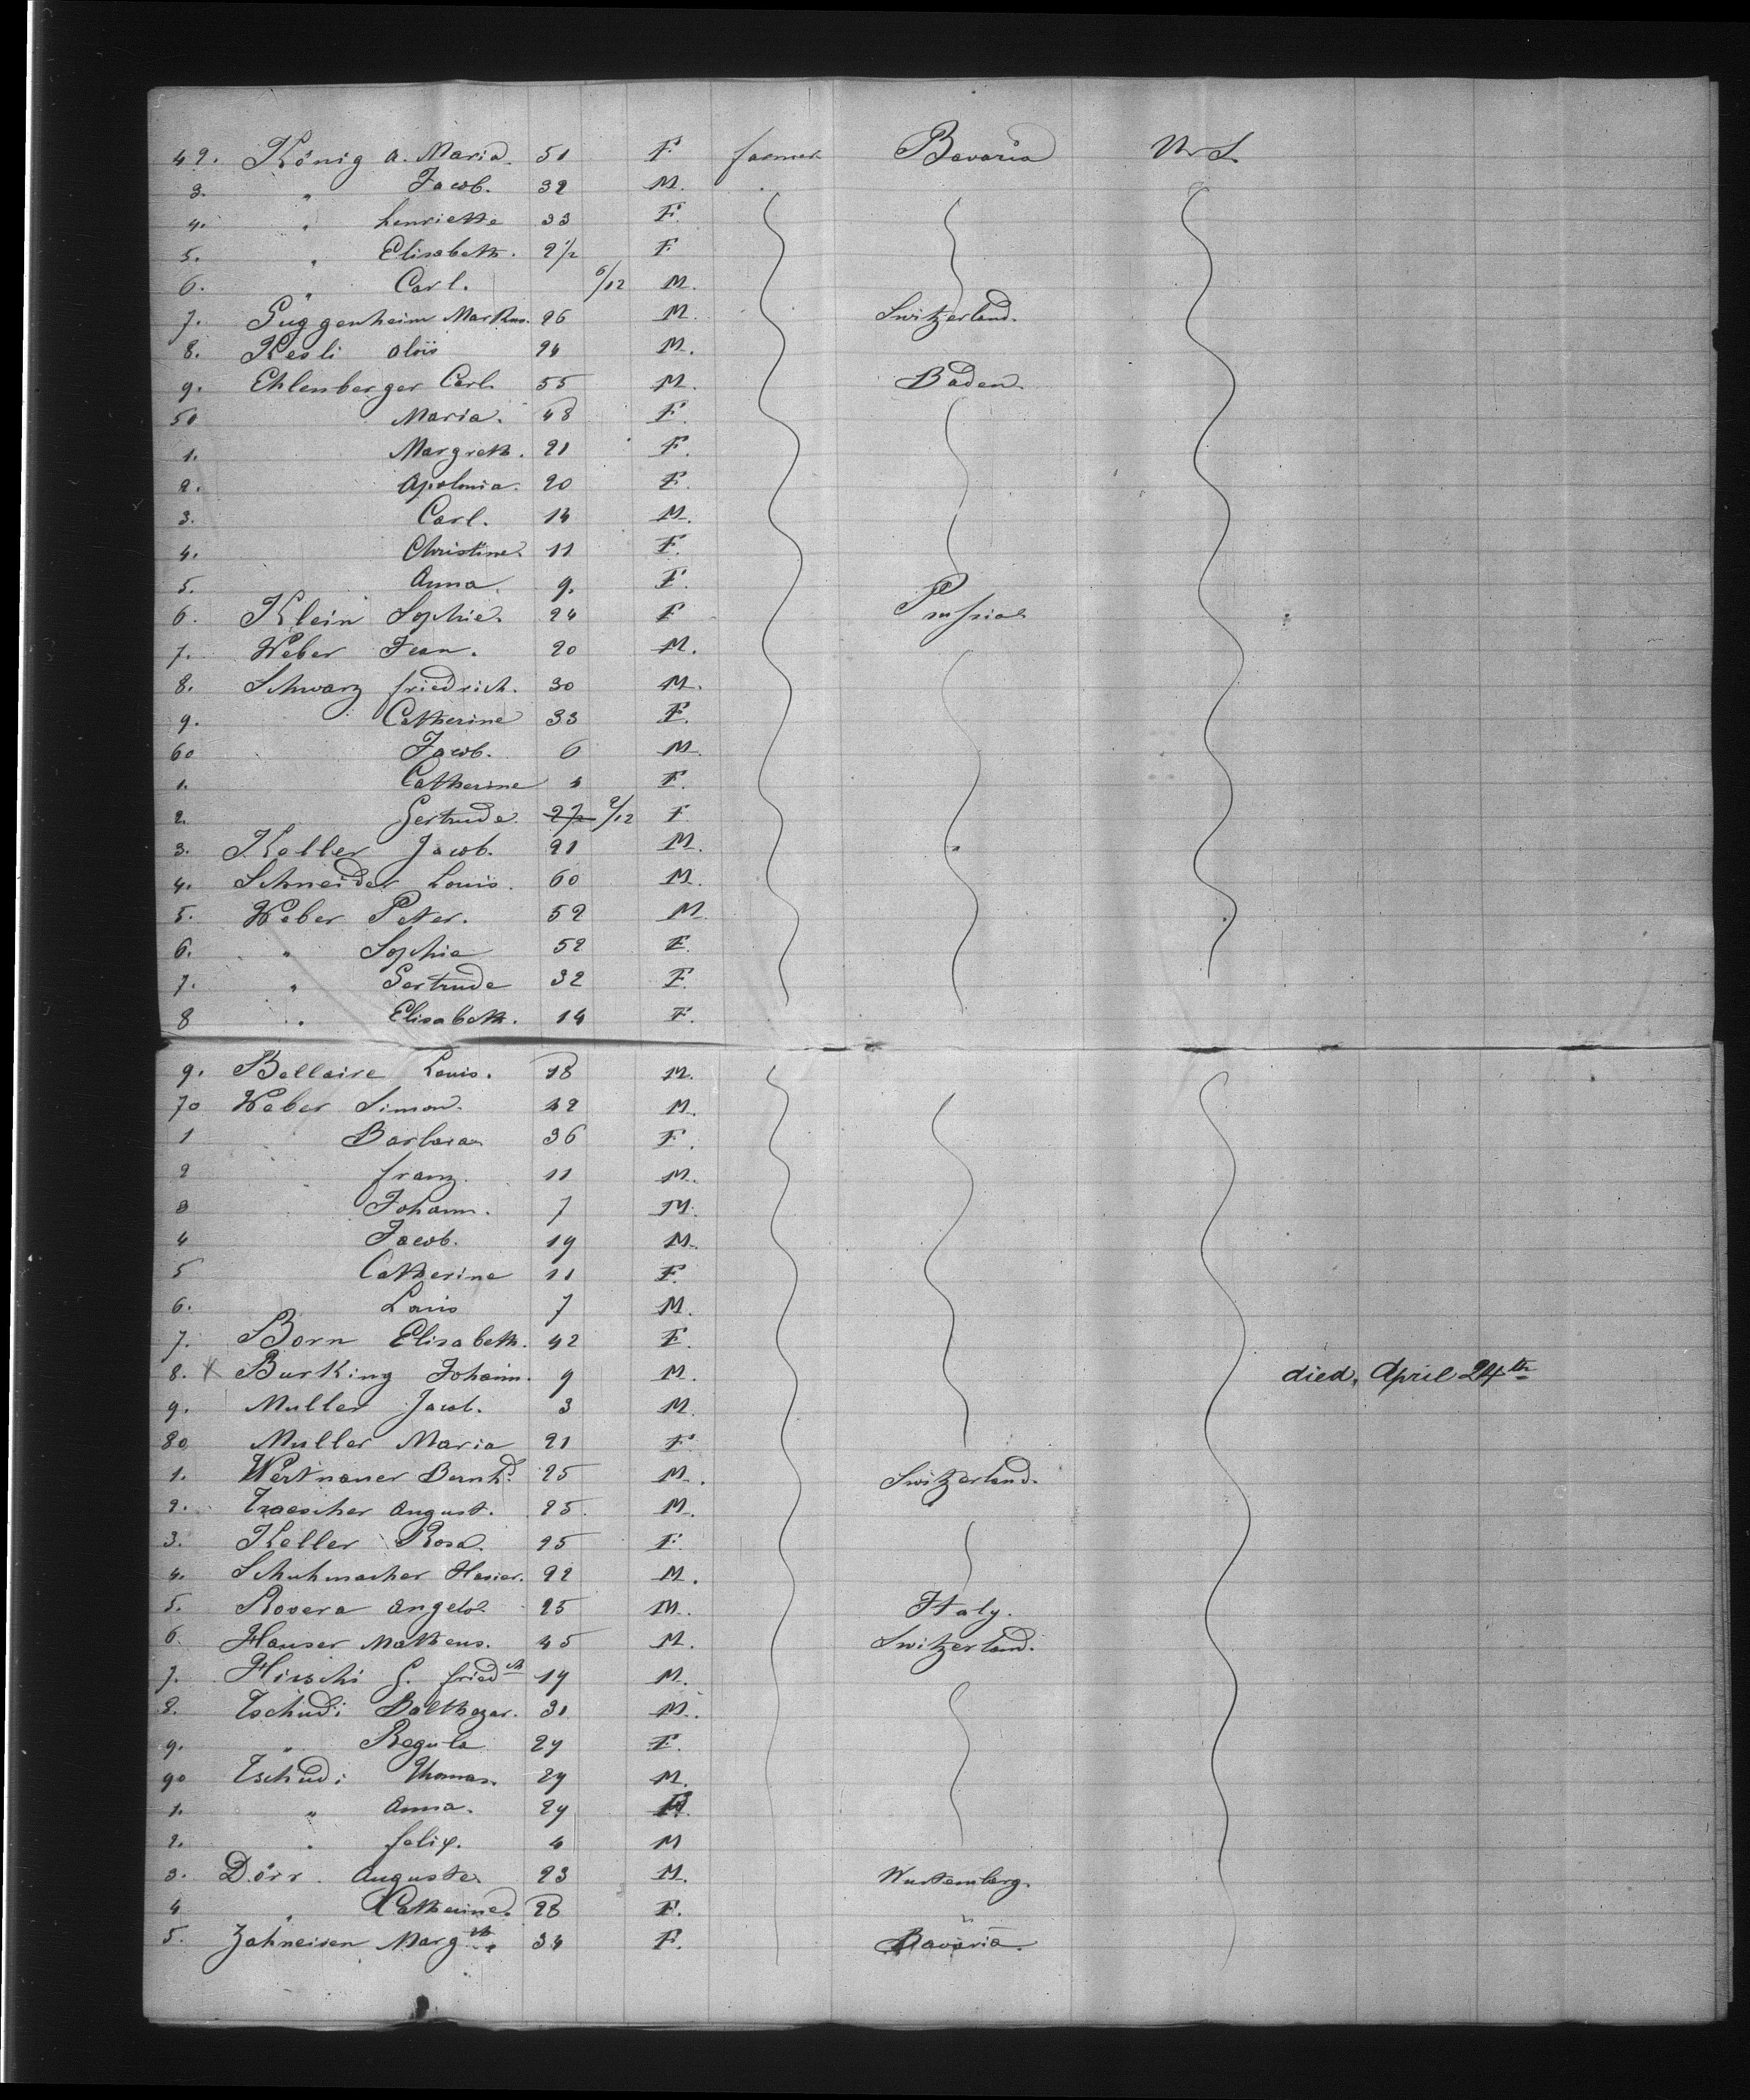 42. König A. Maria. 51 F farmer Bavaria U. S.
3. " Jacob. 32 M. "
4. " henriette 33 F.
5. " Elisabeth. 2 1/2 F.
6. " Carl. 6/12 M.
7. Guggenheim Markus. 26 M. Switzerland.
8. Kesli Aloïs 24 M.
9. Ehlenberger Carl 55 M. Baden.
50 Maria. 48 F.
1. Margreth. 21 F.
2. Apolonia. 20 F.
3. Carl. 14 M.
4. Christine. 11 F.
5. Anna. 9. F.
6. Klein Sophie 24 F Prussia
7. Weber Jean. 20 M.
8. Schwarz friedrich. 30 M.
9. Catherine 33 F.
60 Jacob. 6 M.
1. Catherine 4 F.
2. Gertrude. 2 1/2 2/12 F.
3. Keller Jacob. 21 M. "
4. Schneider Louis. 60 M.
5. Weber Peter. 52 M.
6. " Sophie 52 F.
7. " Gertrude 32 F.
8 " Elisabeth. 14 F.
9. Bellaire Louis. 18 M.
70 Weber Simon. 42 M.
1 Barbara 36 F.
2 franz. 11 M.
3 Johann. 7 M.
4 Jacob. 19 M.
5 Catherine 11 F.
6. Louis 7 M.
7. Born Elisabeth. 42 F.
8. X Burking Johann. 9 M. died, April 24th
9. Muller Jacob. 3 M.
80 Muller Maria 21 F.
1. Wertnauer Bernhd. 25 M. Switzerland.
2. Traescher August. 25. M.
3. Keller Rosa. 25 F.
4. Schuhmacher 22 M.
5. Rovera Angelo 25 M. Italy.
6. Hauser Matheus. 45 M. Switzerland.
7. Hirschi G. friedch 19 M.
8. Tschudi Balthazar. 31 M.
9. " Regula 29 F.
90 Tschudi Thomas. 29 M.
1. " Anna. 29 F.
2. " felix. 4 M
3. Dörr Auguste 23 M. Wurtemberg.
4 " Catherine. 28 F. "
5. Zahneisen Margth. 34 F. Bavaria.